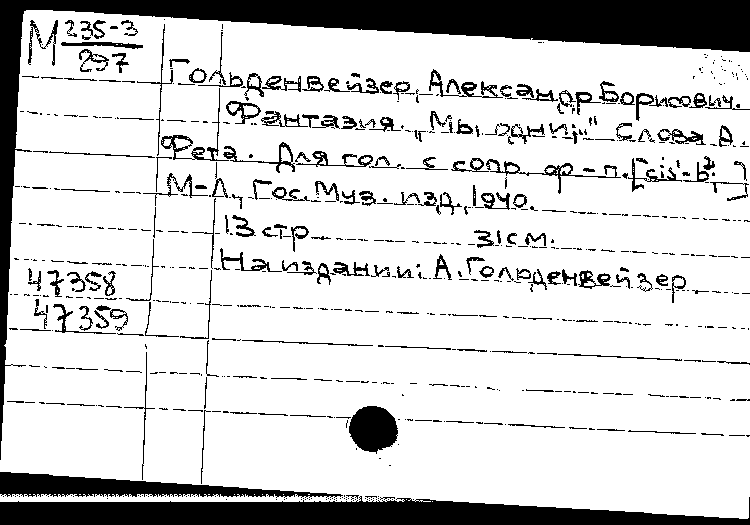 М 235-3
297
Гольденвейзер, Александр Борисович.
Фантазия. „Мы одни;..." Слова А.
Фета. Для гол. с сопр. ф-п. [cis¹-b²]
М-Л., Гос. Муз. изд., 1940.
13 стр. 31 см.
На издании: А. Гольденвейзер.
47358
47359